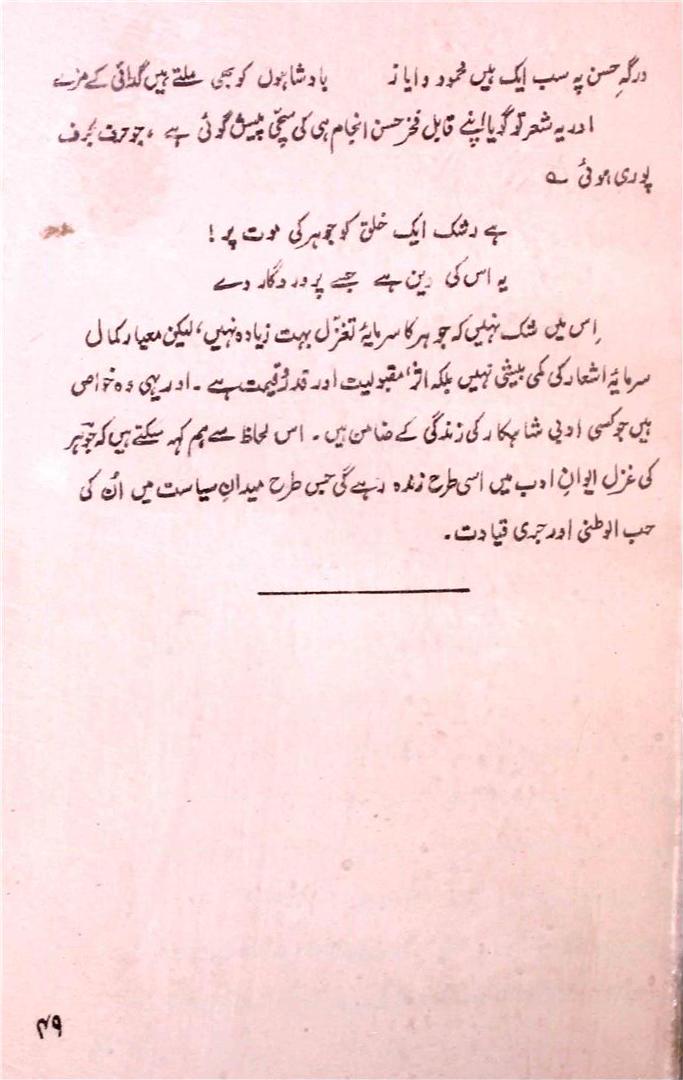 درگہِ حسن پہ سب ایک ہیں محمود و ایاز بادشاہوں کو بھی ملتے ہیں گدائی کے مزے
اور یہ شعر تو گویا اپنے قابل فخر حسن انجام ہی کی سچّی پیش گوئی ہے، جو حرف بحرف
پوری ہوئی ے
ہے رشک ایک خلق کو جوہر کی موت پر!
یہ اس کی دین ہے جسے پروردگار دے
اِس میں شک نہیں کہ جوہر کا سرمایۂ تغزّل بہت زیادہ نہیں، لیکن معیار کمال
سرمایۂ اشعار کی کمی بیشی نہیں بلکہ اثر، مقبولیت اور قدر وقیمت ہے۔ اور یہی وہ خواص
ہیں جو کسی ادبی شاہکار کی زندگی کے ضامن ہیں۔ اس لحاظ سے ہم کہہ سکتے ہیں کہ جوہر
کی غزل ایوانِ ادب میں اسی طرح زندہ رہے گی جس طرح میدانِ سیاست میں اُن کی
حب الوطنی اور جری قیادت۔
۴۹